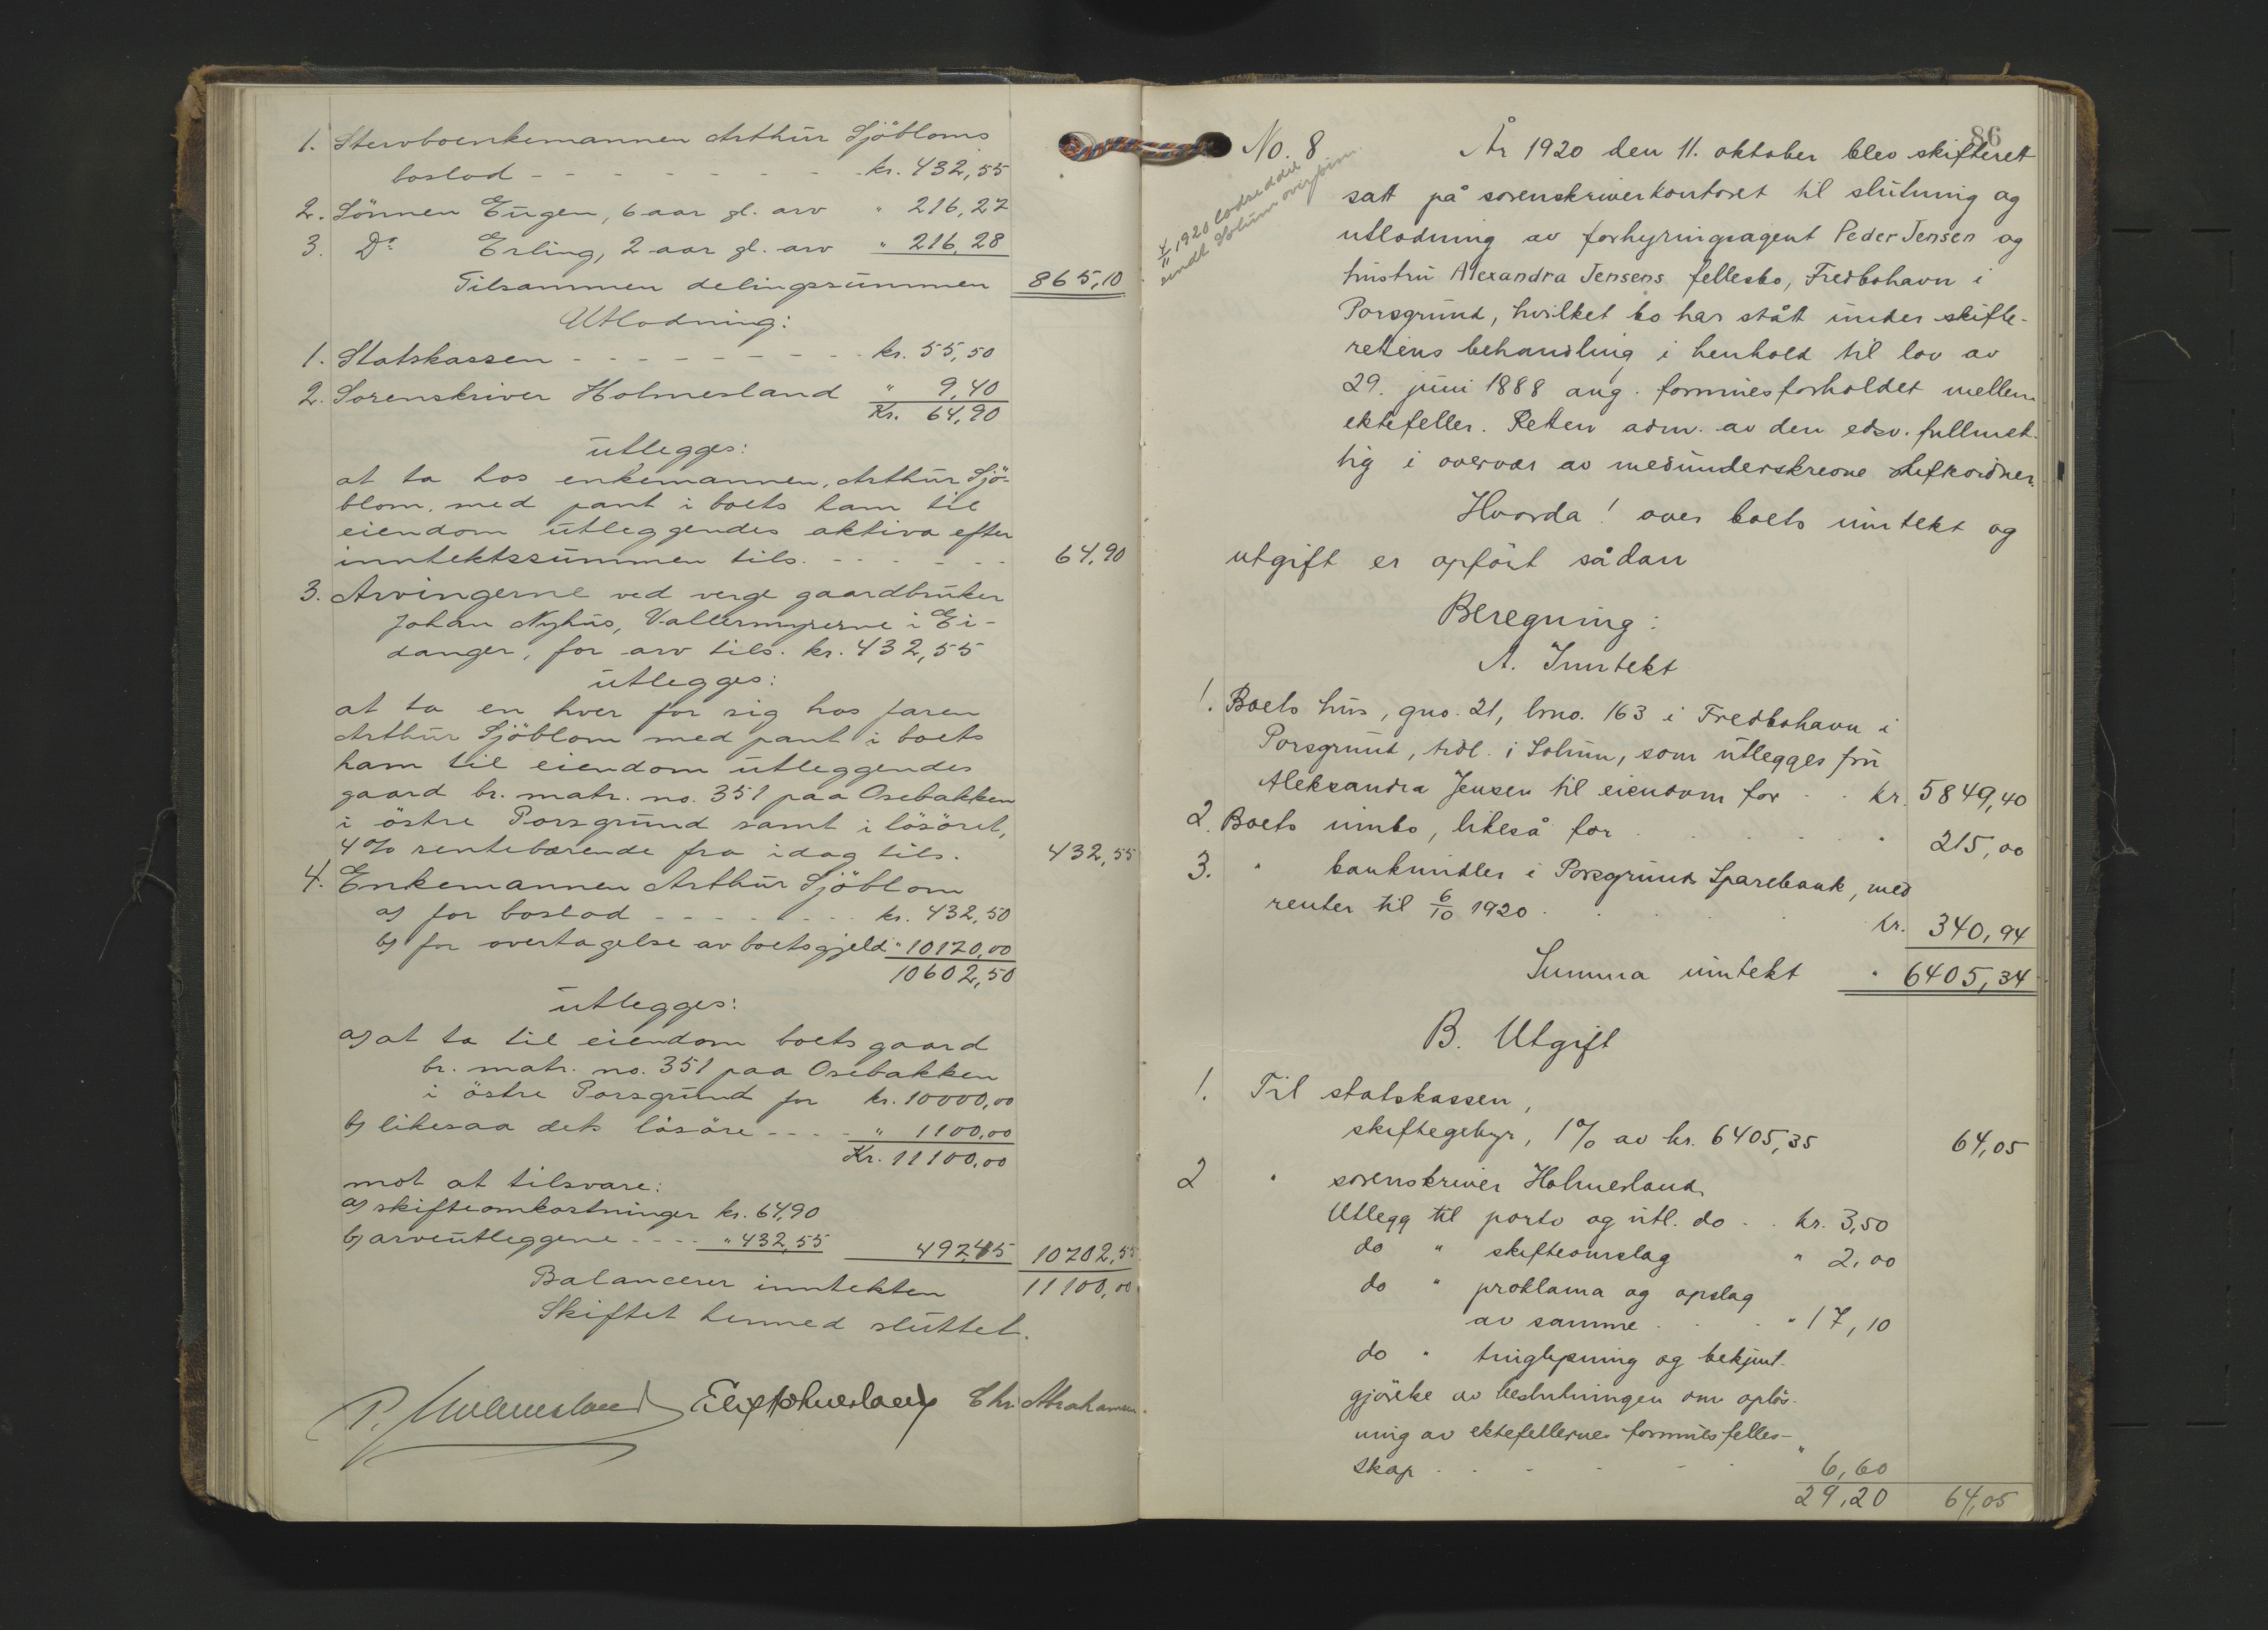 1. Stervboenkemannen Arthur Sjöbloms
boslod - - - - - - - - kr. 432,55
2. Sönnen Eugen, 6 aar gl. arv " 216,27
3. Do Erling, 2 aar gl. arv " 216,28
Tilsammen delingssummen 865,10
Utlodning:
1. Statskassen - - - - - - - - kr. 55,50
2. Sorenskriver Holmesland " 9,40
Kr. 64,90
utlegges:
at ta hos enkemannen, Arthur Sjö-
blom, med pant i boets ham til
eiendom utleggendes aktiva efter
inntektssummen tils. - - - - - - 64,90
3. Arvingerne ved verge gaardbruker
Johan Nyhus, Vallermyrerne i Ei-
danger, for arv tils. kr. 432,55
utlegges:
at ta en hver for sig hos faren
Arthur Sjöblom med pant i boets
ham til eiendom utleggendes
gaard br. matr. no. 351 paa Osebakken
i östre Porsgrund samt i lösöret,
4% rentebærende fra idag tils. 432,55
4. Enkemannen Arthur Sjöblom
a) for boslod - - - - - - - kr. 432,50
b) for overtagelse av boets gjeld " 10170,00
10602,50
utlegges:
a) at ta til eiendom boets gaard
br. matr. no. 351 paa Osebakken
i östre Porsgrund for kr. 10000,00
b) likesaa dets lösöre - - - - " 1100,00
Kr. 11100,00
mot at tilsvare:
a) skifteomkostninger kr. 64,90
b) arveutleggene - - - - " 432,55 497,45 10702,55
Balancerer inntekten 11100,00
Skiftet hermed sluttet.
P. Holmesland Chr. Abrahamsen.
86
No. 8
År 1920 den 11. oktober blev skifterett
satt på sorenskriverkontoret til slutning og
utlodning av forhyringsagent Peder Jensen og
hustru Alexandra Jensens fellesbo, Fredbohavn i
Porsgrund, hvilket bo har stått under skifte-
rettens behandling i henhold til lov av
29. juni 1888 ang. formuesforholdet mellem
ektefeller. Retten adm. av den edsv. fullmek-
tig i overvær av medunderskrevne
Hvorda! over boets inntekt og
utgift er opfört sådan
Beregning:
A. Inntekt
1. Boets hus, gno. 21, brno. 163 i Fredbohavn i
Porsgrund, tidl. i Solum, som utlegges fru
Aleksandra Jensen til eiendom for . . kr. 5849,40
2. Boets innbo, likeså for . . . . . " 215,00
3. " bankmidler i Porsgrunds Sparebank, med
renter til 6/10 1920 . . . . . kr. 340,94
Summa inntekt " 6405,34
B. Utgift
1. Til statskassen,
skiftegebyr, 1% av kr. 6405,35 64,05
2 " sorenskriver Holmesland
Utlegg til porto og utl. do . . kr. 3,50
do " skifteomslag " 2,00
do " proklama og opslag
av samme . . . " 17,10
do " tinglysning og bekjent-
gjörelse av beslutningen om oplös-
ning av ektefellernes formuesfelles-
skap . . - - - - " 6,60
29,20 64,05